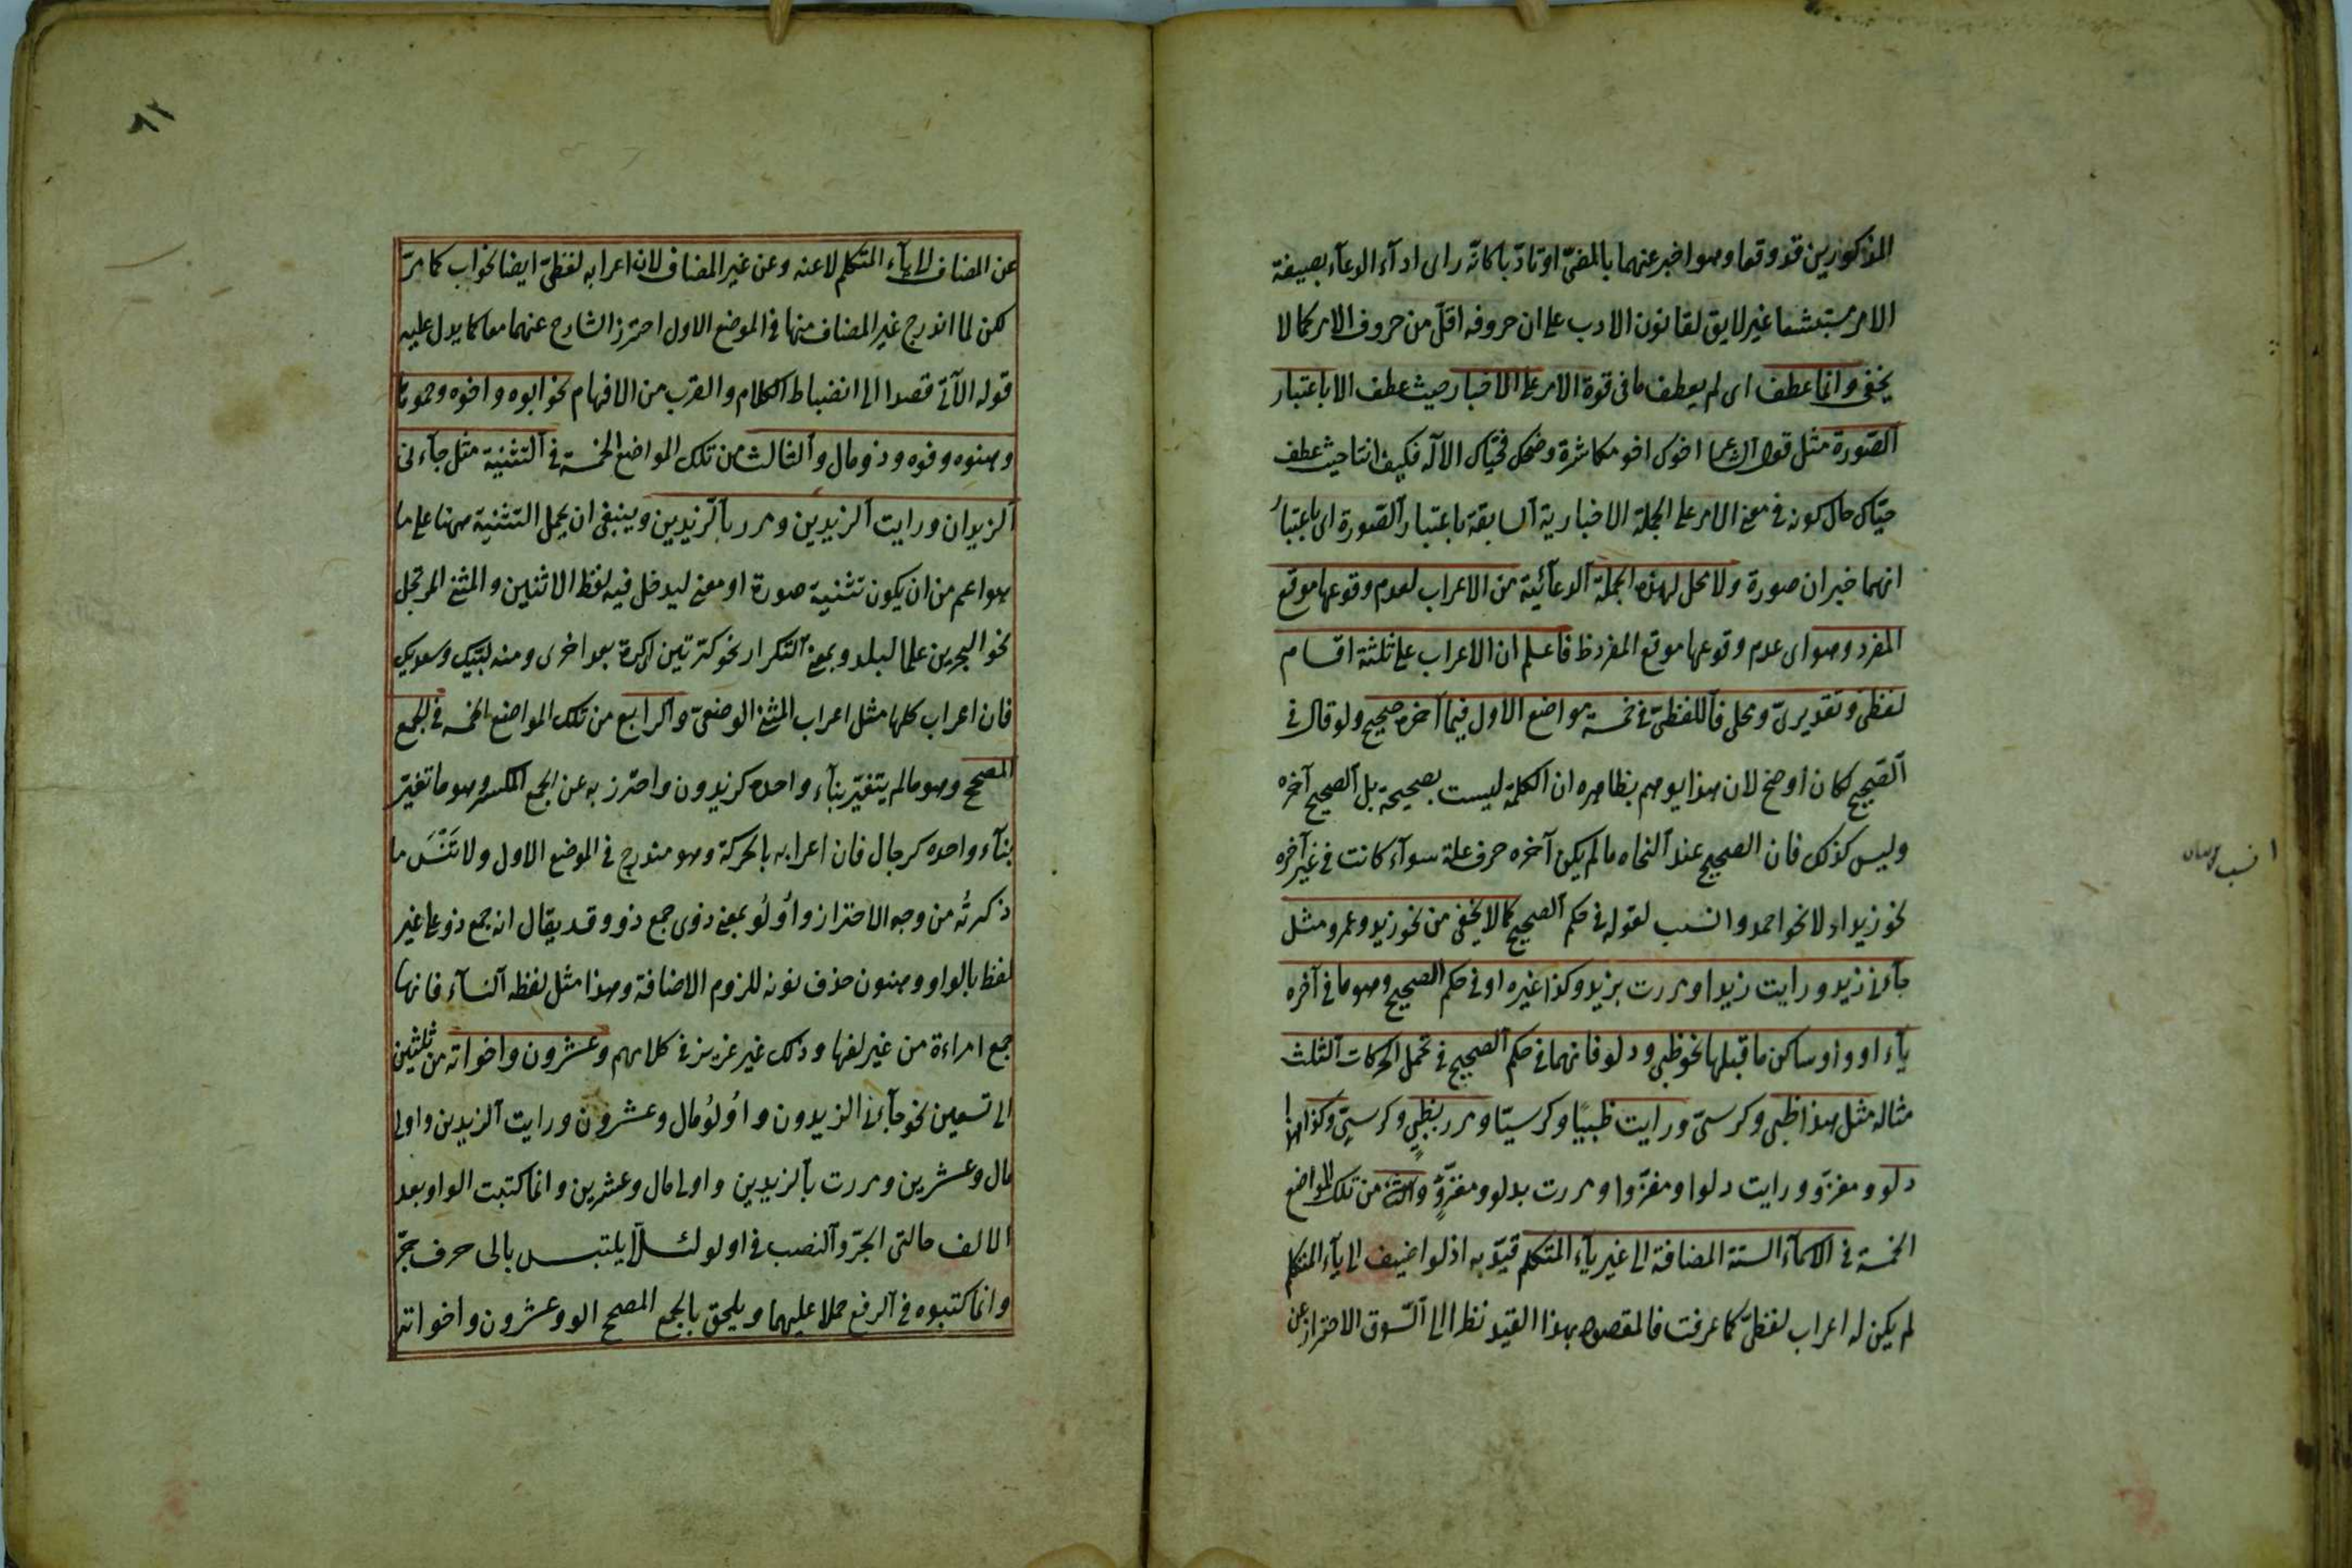 المذكورين قد وقعا وهو اخبر عنهما بالمضىّ او تادّبا كانّه راى اداء الدعاء بصيغة
الامر مستبشعا غير لايق لقانون الادب على ان حروفه اقلّ من حروف الامر كما لا
يخفى وانما عطف اى لم يعطف ما فى قوة الامر على الاخبار حيث عطف الا باعتبار
الصّورة مثل قول اخوك اخو مكاشرة وضحك فحيّاك الاله فكيف انتا حيث عطف
حيّاك حال كونه فى معنى الامر على الجملة الاخبارية السابقة باعتبار الصّورة اى باعتبار
انهما خبران صورة ولا محل لهذه الجملة الدعائية من الاعراب لعدم وقوعها موقع
المفرد وهو اى عدم وقوعها موقع المفرد ظ فاعلم ان الاعراب على ثلثة اقسام
لفظى وتقديرىّ ومحلى فاللفظىّ فى خمسة مواضع الاول فيما آخره صحيح ولو قال فى
الصّحيح لكان اوضح لان هذا يوهم بظاهره ان الكلمة ليست بصحيحة بل الصحيح آخره
وليس كذلك فان الصحيح عند النحاه ما لم يكن آخره حرف علة سوآء كانت فى غير آخره
نحو زيد او لا نحو احمد وانسب لقوله فى حكم الصحيح كما لا يخفى من نحو زيد وعمرو مثل
جآءنى زيد ورايت زيدا ومررت بزيد وكذا غيره او فى حكم الصحيح وهو ما فى آخره
يآء او واو ساكن ما قبلها نحو ظبى ودلو فانهما فى حكم الصحيح فى تحمل الحركات الثلث
مثاله مثل هذا ظبى وكرسىّ ورايت ظبيًا وكرسيّا ومرر بظبىٍ وكرسىّ وكذا هذا
دلو ومغزوّ ورايت دلوا ومغزوّا ومررت بدلو ومغزوٍّ والثانى من تلك المواضع
الخمسة فى الاسمآء الستة المضافة الى غير يآء المتكلم قيّد به اذ لو اضيف الى يآء المتكلم
لم يكن له اعراب لفظىّ كما عرفت فالمقصود بهذا القيد نظرا الى السّوق الاحتراز عن
انسب
٦٢
عن المضاف الى يآء المتكلم لا عنه وعن غير المضاف لان اعرابه لفظىّ ايضا نحو اب كما مرّ
لكن لما اندرج غير المضاف منها فى الموضع الاول احترز الشارح عنهما معا كما يدل عليه
قوله الآتى قصدا الى انضباط الكلام والقرب من الافهام نحو ابوه واخوه وحموها
وهنوه وفوه وذو مال والثالث من تلك المواضع الخمسة فى التثنية مثل جآءنى
الزيدان ورايت الزيدين ومرر بالزيدين وينبغى ان يحمل التثنية ههنا على ما
هو اعم من ان يكون تثنية صورة او معنى ليدخل فيه لفظ الاثنين والمثنى المرتجل
نحو البحرين علما لبلد وبمعنى التكرار نحو كرّتين اى كرة بعد اخرى ومنه لبّيك وسعديك
فان اعراب كلها مثل اعراب المثنى الوضعىّ والرابع من تلك المواضع الخمسة فى الجمع
المصحح وهو ما لم يتغيّر بنآء واحده كزيدون واحترز به عن الجمع المكسر وهو ما تغيّر
بنآء واحده كرجال فان اعرابه بالحركة وهو مندرج فى الموضع الاول ولا تَنْسَ ما
ذكرتُه من وجه الاحتراز واُولُو بمعنى ذوى جمع ذو وقد يقال انه جمع ذو على غير
لفظ بالواو وهنون حذف نونه للزوم الاضافة وهذا مثل لفظه النسآء فانها
جمع امراءة من غير لفها وذلك غير عزيز فى كلامهم وعشرون واخواته من ثلثين
الى تسعين نحو جآءنى الزيدون واُولُو مال وعشرون ورايت الزيدين واولى
مال وعشرين ومررت بالزيدين واولى مال وعشرين وانما كتبت الواو بعد
الالف حالتى الجرّ والنصب فى اولو لئلّا يلتبس بالى حرف جرّ
وانما كتبوه فى الرفع حملا عليهما ويلحق بالجمع المصحح الو وعشرون واخواته